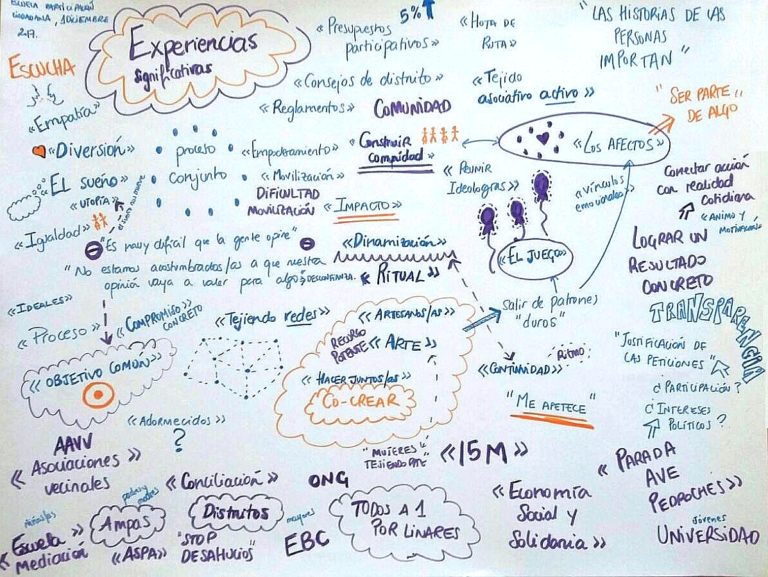 ESCUELA PARTICIPACIÓN
CIUDADANA, 1 DICIEMBRE
2.17.
Experiencias
significativas
5%
«Presupuestos
participativos»
«HOJA DE
RUTA»
"LAS HISTORIAS DE LAS
PERSONAS
IMPORTAN"
ESCUCHA
«Empatía»
«Consejos de distrito»
«Tejido
asociativo activo»
"SER PARTE
DE ALGO"
«Reglamentos»
COMUNIDAD
«Diversión»
proceso
conjunto
«Empoderamiento»
«Construir
comunidad»
«LOS AFECTOS»
«EL sueño»
«UTOPÍA»
«Movilización»
DIFICULTAD
MOVILIZACIÓN
«IMPACTO»
«Reunir
Ideologías»
«vínculos
emocionales»
Conectar acción
con realidad
cotidiana
«ÁNIMO Y
MOTIVACIÓN»
«Igualdad»
"Es muy difícil que la gente opine"
«Dinamización»
«EL JUEGO»
LOGRAR UN
RESULTADO
CONCRETO
"No estamos acostumbrados/as a que nuestra
opinión vaya a valer para algo"
DESCONFIANZA.
«RITUAL»
«IDEALES»
«Proceso»
«COMPROMISO»
CONCRETO
«Tejiendo redes»
«ARTESANOS/AS»
RECURSO
POTENTE
«ARTE»
Salir de patrones
"duros"
TRANSPARENCIA
«OBJETIVO COMÚN»
«HACER JUNTOS/AS»
CO-CREAR
Ritmo
«CONTINUIDAD»
"JUSTIFICACIÓN DE
LAS PETICIONES"
"ME APETECE"
¿PARTICIPACIÓN?
¿INTERESES
POLÍTICOS?
«Adormecidos»
?
AAVV
«Asociaciones»
vecinales
"MUJERES
TEJIENDO
«15M»
«PARADA
AVE
PEDROCHES»
«Conciliación»
ONG
padres y madres
Ampas
Distritos
mayores
TODOS A 1
POR LINARES
«Economía
Social y
Solidaria»
«Escuela»
Mediación
«ASPA»
"STOP
DESAHUCIOS"
EBC
jóvenes
UNIVERSIDAD